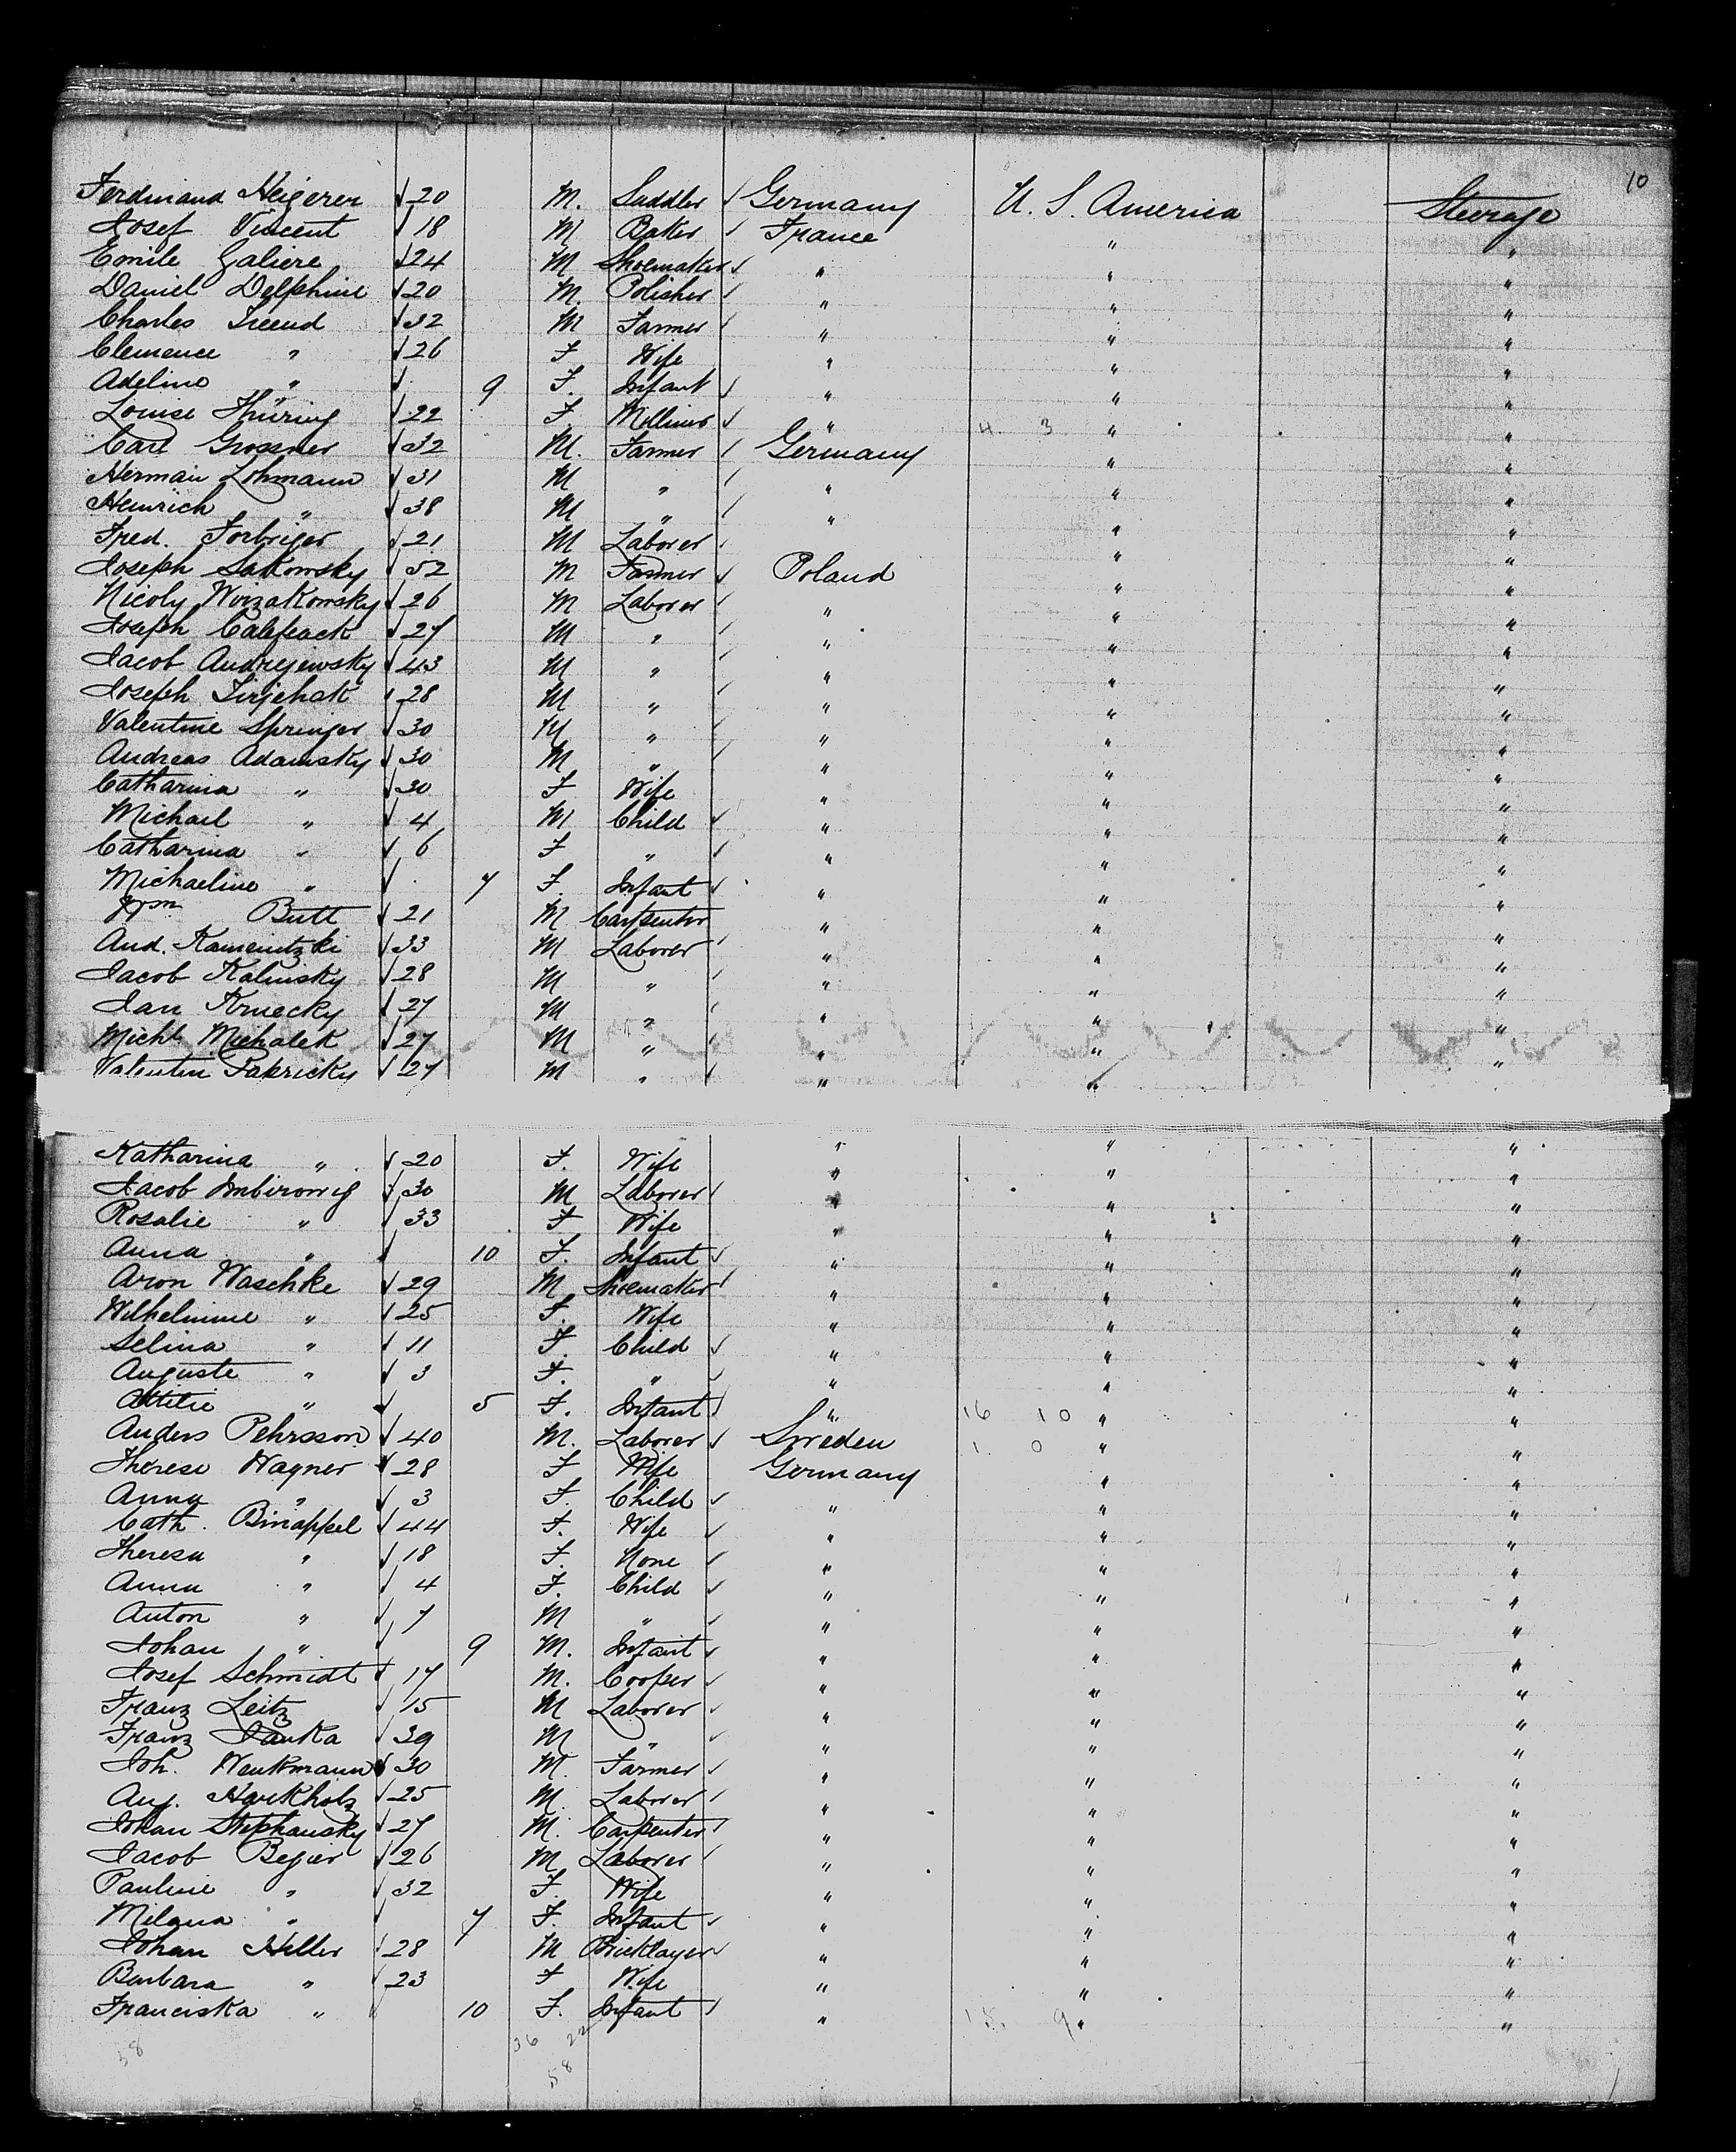 10
Ferdinand Heigerer √ 20 M. Saddler √ Germany U. S. America Steerage
Josef Vincent √ 18 M Baker √ France " "
Emile Galiere √ 24 M Shoemaker √ " " "
Daniel Delphine √ 20 M. Polisher √ " " "
Charles √ 32 M Farmer √ " " "
Clemence " √ 26 F Wife " " "
Adeline " √ 9 F. Infant √ " " "
Louise Thüring √ 22 F Milliner √ " 4 3 " "
Carl Grossner √ 32 M. Farmer √ Germany " "
Herman Lohmann √ 31 M " √ " " "
Heinrich " √ 38 M " √ " " "
Fred. Forbriger √ 21 M Laborer √ " "
Joseph Sakowsky √ 52 M Farmer √ Poland " "
Nicoly Worzakowsky √ 26 M Laborer √ " " "
Joseph √ 27 M " √ " " "
Jacob Andrejewsky √ 43 M " √ " " "
Joseph √ 28 M " √ " " "
Valentine Springer √ 30 M " √ " " "
Andreas Adamsky √ 30 M " √ " " "
Catharina " √ 30 F Wife " " "
Michael " √ 4 M Child √ " " "
Catharina " √ 6 F " √ " " "
Michaeline " √ 7 F. Infant √ " " "
Wm Butt √ 21 M Carpenter " " "
And. Kameintzki √ 33 M Laborer √ " " "
Jacob Kalinsky √ 28 M " √ " " "
Jan Krnecky √ 27 M " √ " " "
Michl Michalek √ 27 M " √ " " "
Valentin Pakricky √ 27 M " √ " "
Katharina " √ 20 F. Wife " " "
Jacob √ 30 M Laborer √ " " "
Rosalie " √ 33 F Wife " " "
Anna " √ 10 F. Infant √ " " "
Aron Waschke √ 29 M Shoemaker √ " " "
Wilhelmine " √ 25 F. Wife " " "
Selina " √ 11 F. Child √ " " "
Auguste " √ 3 F. " √ " " "
Ottilie " √ 5 F. Infant √ " 16 10 " "
Anders Pehrsson √ 40 M. Laborer √ Sweden 1. 0 " "
Therese Wagner √ 28 F Wife Germany " "
Anna " √ 3 F. Child √ " " "
Cath. Binappel √ 44 F. Wife √ " " "
Theresa " √ 18 F. None √ " " "
Anna " √ 4 F. Child √ " " "
Anton " √ 7 M " √ " " "
Johan " √ 9 M. Infant √ " " "
Josef Schmidt √ 17 M. Cooper √ " " "
Franz Leitz √ 15 M Laborer √ " " "
Franz Janka √ 39 M " √ " " "
Joh. Wenkmann √ 30 M. Farmer √ " " "
Aug. Harkholz √ 25 M. Laborer √ " " "
Johan Stephansky √ 27 M. Carpenter √ " " "
Jacob Begier √ 26 M Laborer √ " " "
Pauline " √ 32 F. Wife " " "
Milana " √ 7 F. Infant √ " " "
Johan Heller √ 28 M Bricklayer √ " " "
Barbara " √ 23 F Wife " " "
Franciska " 10 F. Infant √ " 15 9 " "
58 36 22
58